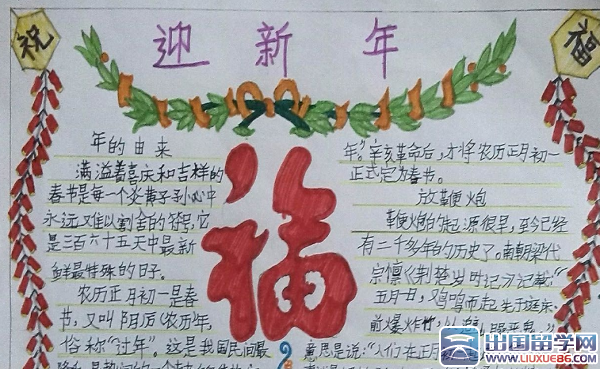 祝
迎新年
福
年的由来
满溢着喜庆和吉祥的
春节是每一个炎黄子孙心中
永远难以割舍的符号,它
是三百六十五天中最新
鲜最特殊的日子。
农历正月初一是春
节,又叫阴历(农历)年,
俗称“过年”。这是我国民间最
福
年”。辛亥革命后,才将农历正月初一
正式定为春节。
放鞭炮
鞭炮的起源很早,至今已经
有二千多年的历史了。南朝梁代
宗懔《荆楚岁时记》记载:“
五月日,鸡鸣而起,先于庭
前爆竹,
意思是说:“人们在正月
出国留学网
www.liuxue86.com